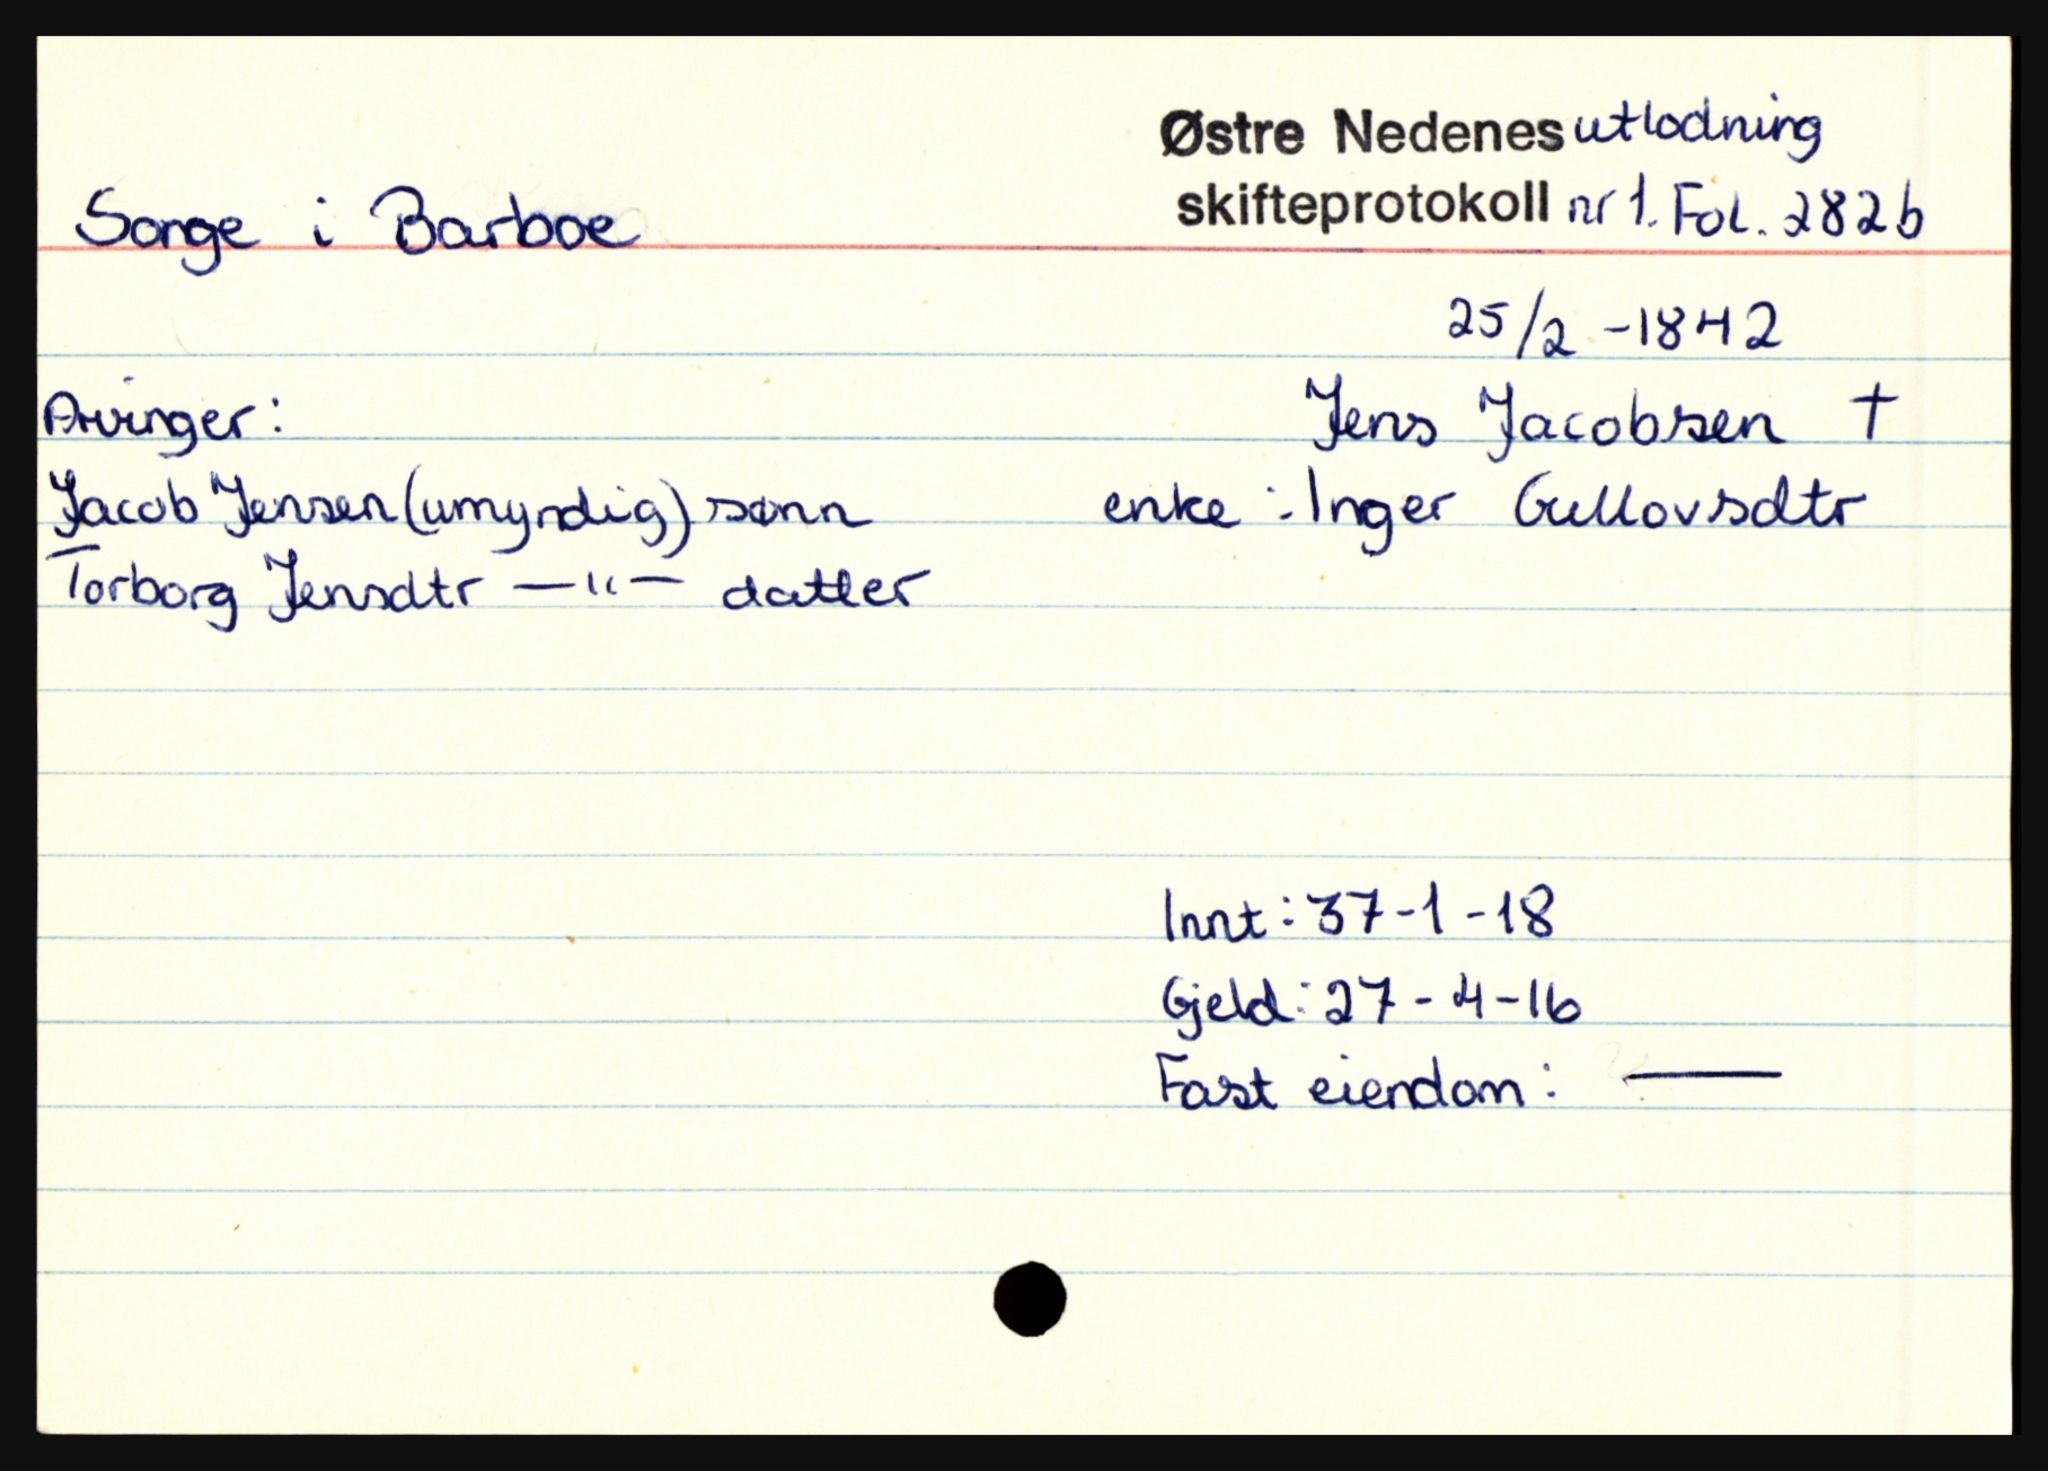 Østre Nedenes utlodning
skifteprotokoll nr 1. Fol. 282b
Songe i Barboe
25/2 - 1842
Arvinger:
Jens Jacobsen †
Jacob Jensen (umyndig) sønn
enke: Inger Gullovsdtr
Torborg Jensdtr —"— datter
Innt: 37-1-18
Gjeld: 27-4-16
Fast eiendom: —